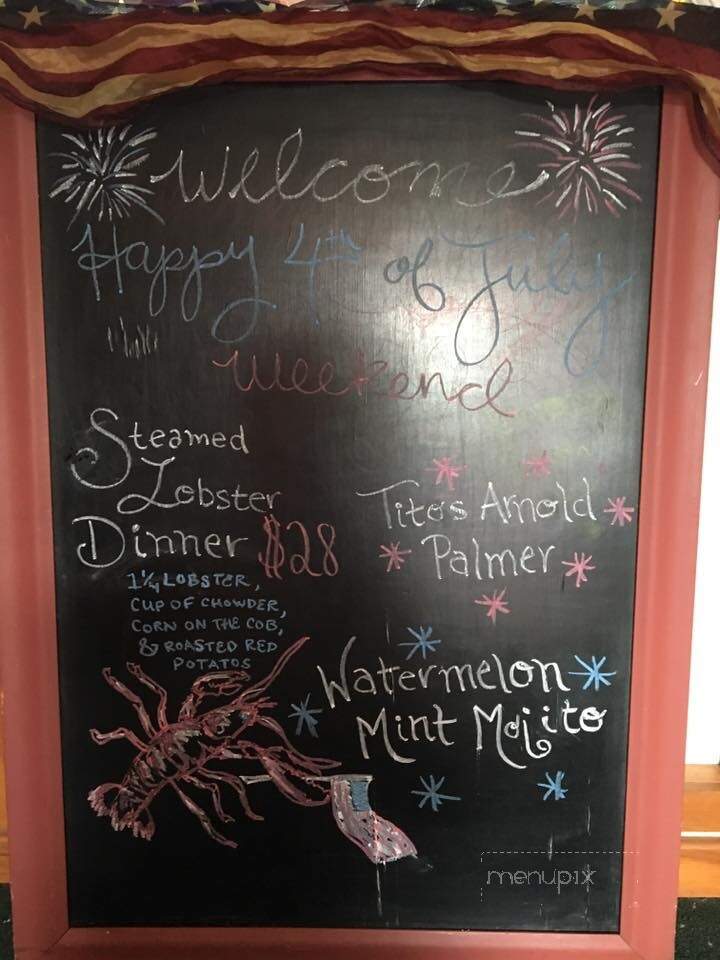 Welcome
Happy 4th of July
Weekend
Steamed
Lobster
Dinner $28
1¼ LOBSTER,
CUP OF CHOWDER,
CORN ON THE COB,
& ROASTED RED
POTATOS
Titos Arnold
Palmer
Watermelon
Mint Mojito
menupix